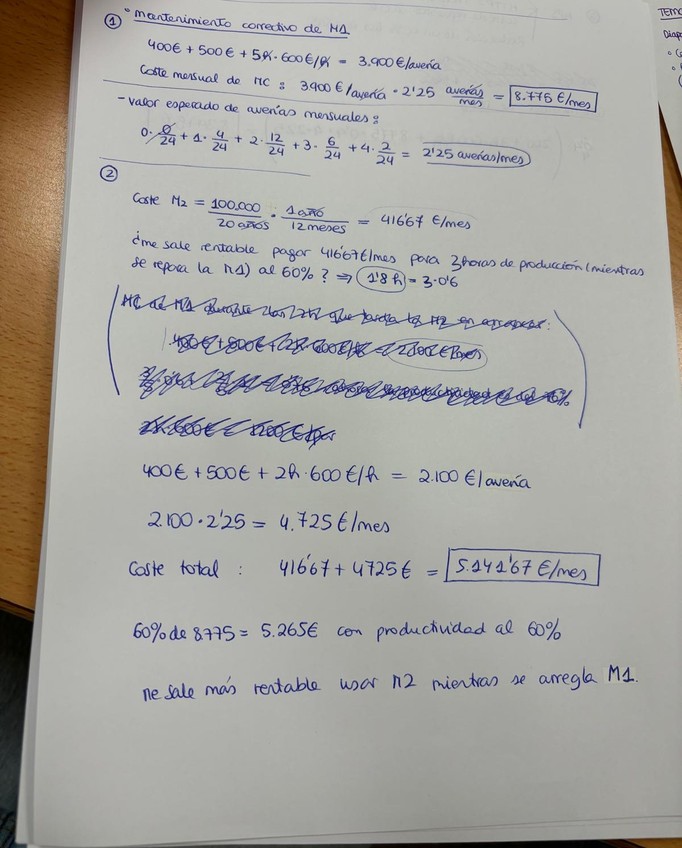 TEMA
① * Mantenimiento correctivo de M1
400€ + 500€ + 5h · 600€/h = 3.900€/avería
Coste mensual de MC : 3900 €/avería · 2'25 averías/mes = 8.775 €/mes
- Valor esperado de averías mensuales :
0 · 0/24 + 1 · 4/24 + 2 · 12/24 + 3 · 6/24 + 4 · 2/24 = 2'25 averías/mes
②
Coste M2 = 100.000/20 años · 1 año/12 meses = 416'67 €/mes
¿me sale rentable pagar 416'67€/mes para 3 horas de producción (mientras
se repara la M1) al 60% ? ⇒ 1'8 h = 3 · 0'6
400€ + 500€ + 2h · 600 €/h = 2.100 €/avería
2.100 · 2'25 = 4.725 €/mes
Coste total : 416'67 + 4725€ = 5.141'67 €/mes
60% de 8775 = 5.265€ con productividad al 60%
me sale más rentable usar M2 mientras se arregla M1.